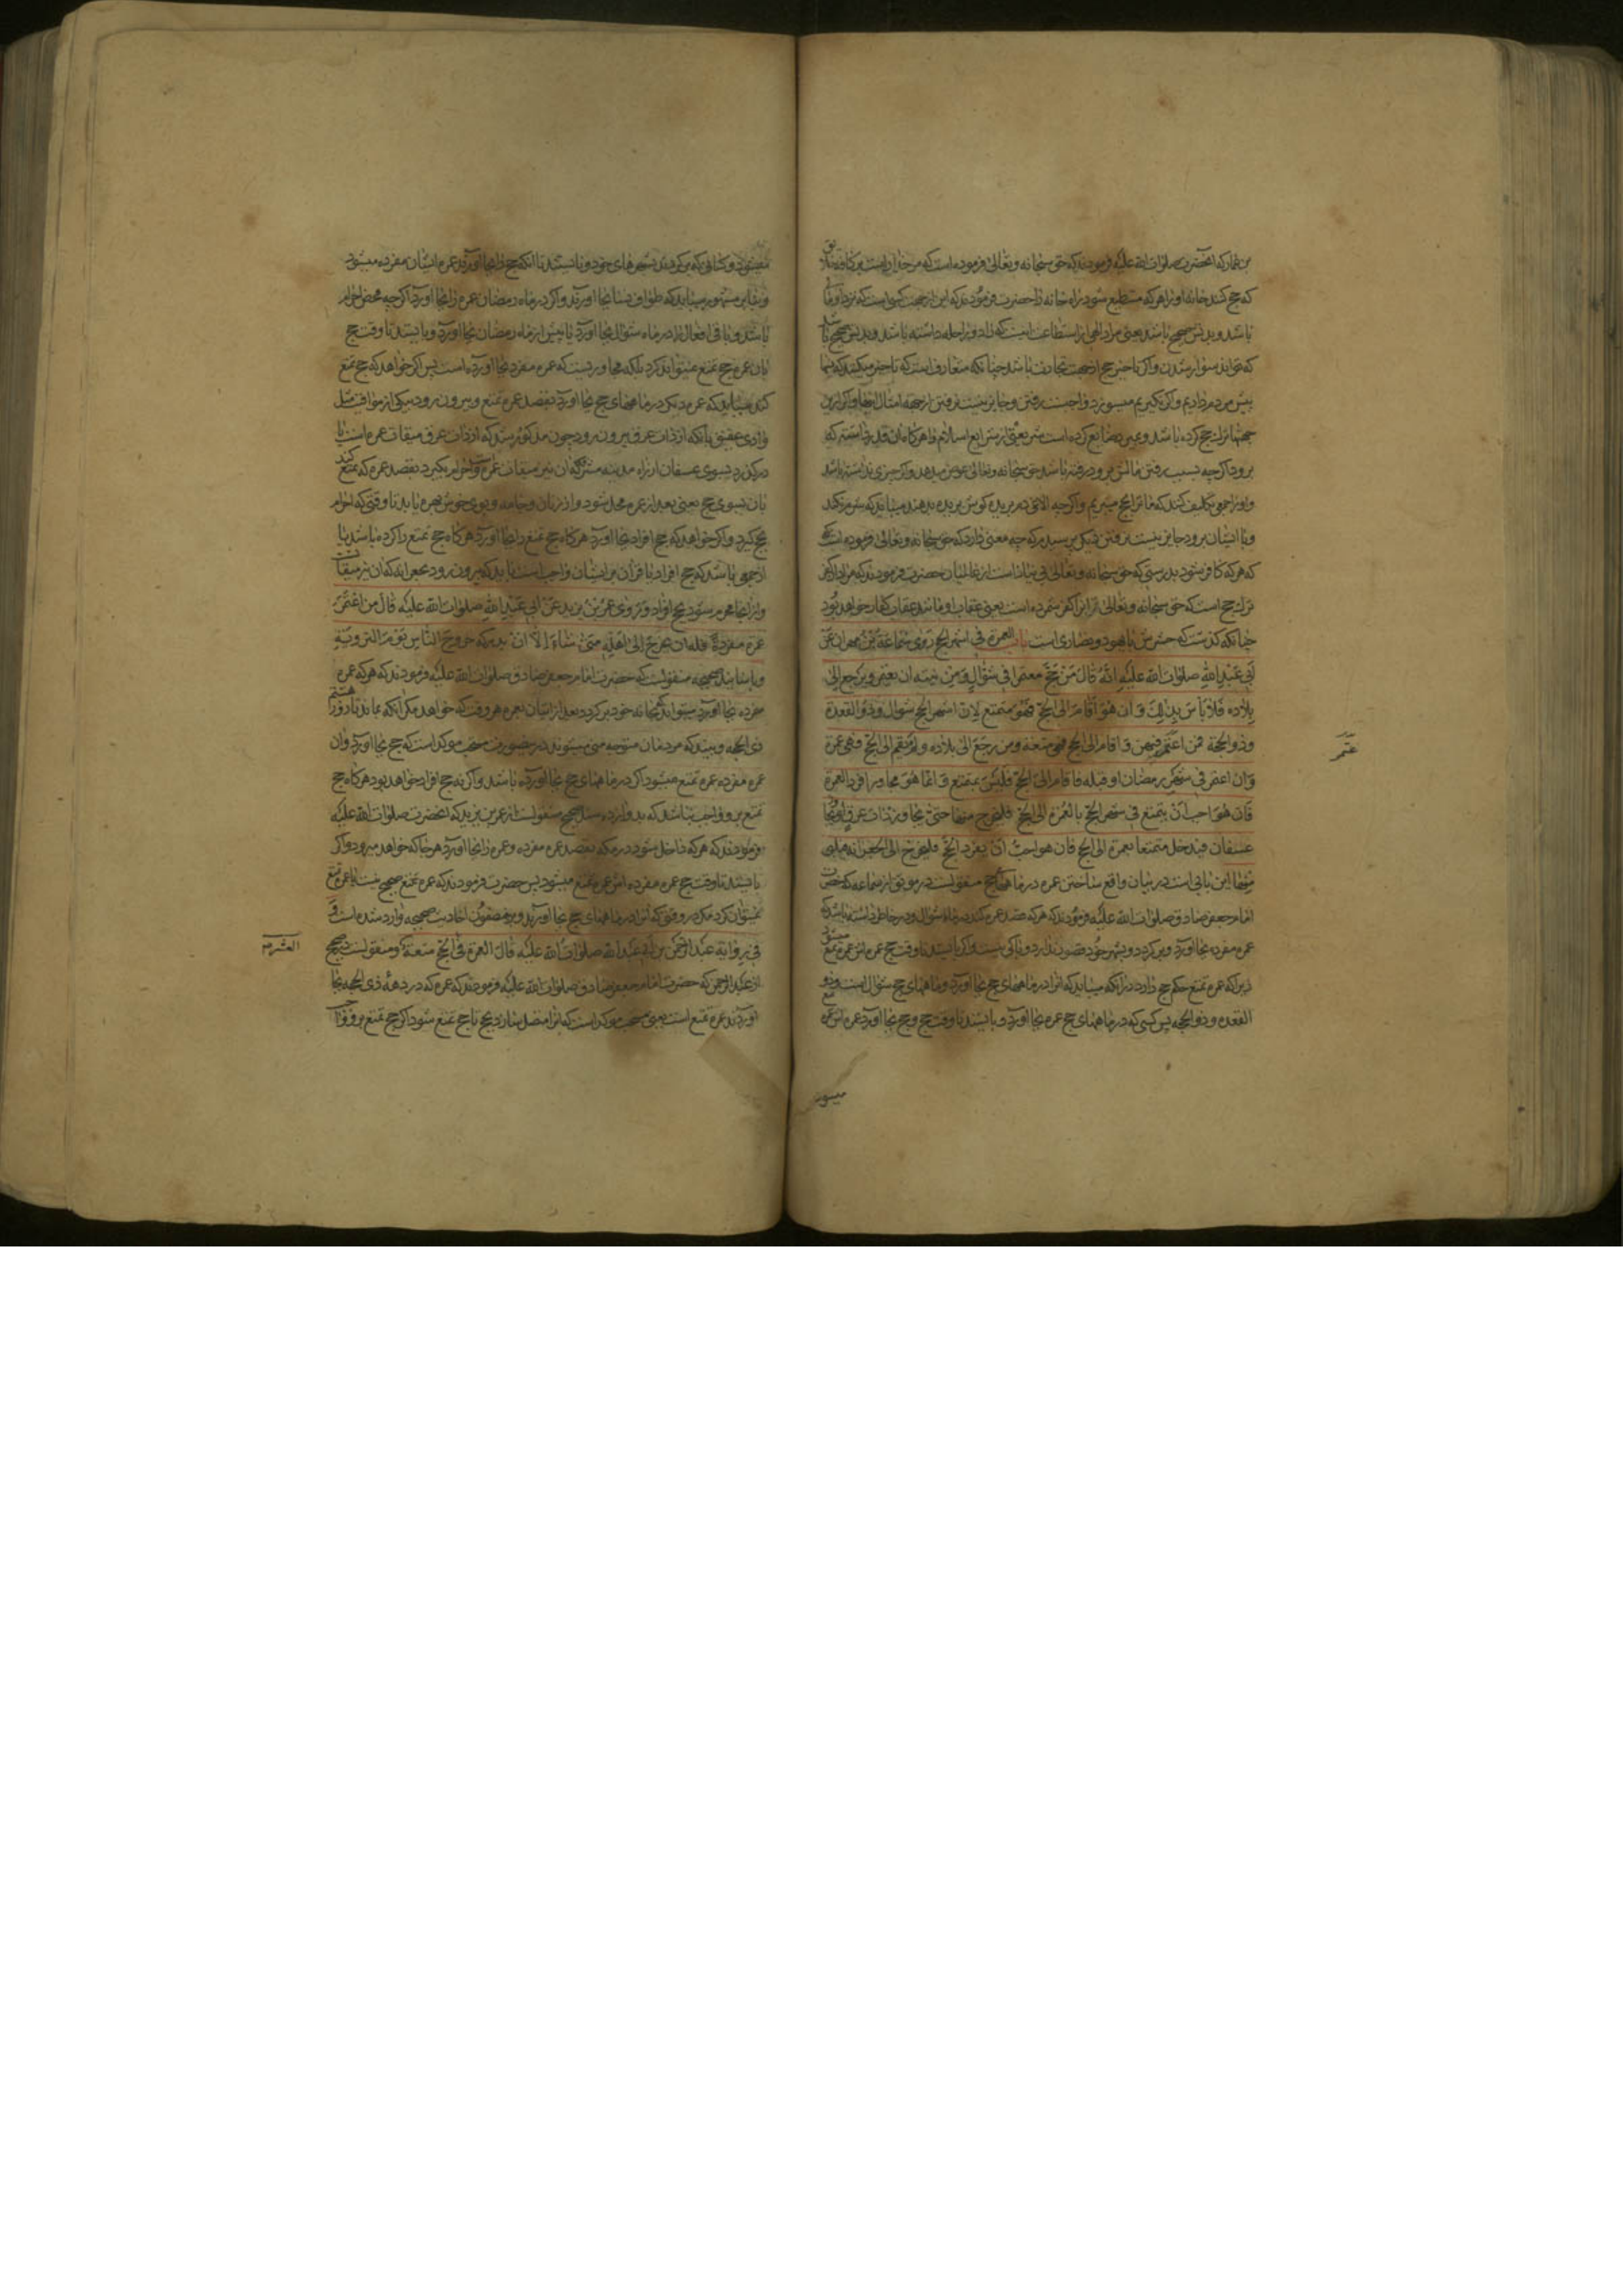 بن عمار که آنحضرت صلوات الله علیه فرمودند که حق سبحانه و تعالی فرموده است که مر خدا راست بر کافه
که حج کنند خانه او را هر که مستطیع شود راه خانه را حضرت فرمودند که این از جهت کسی است که نزد او مال
باشد و بدنش صحیح باشد یعنی مراد الهی از استطاعت اینست که زاد و راحله داشته باشد و بدنش صحیح باشد
که تواند سوار شدن و اگر تاخیر حج از جهت تجارت باشد چنانکه متعارف است که تاخیر میکنند که
پیش مردم دادیم و اگر نگیریم میسوزد واجبست رفتن و جایز نیست نرفتن از جهة امثال اینها و اگر ازین
جهتها ترک حج کرده باشد و بمیرد ضایع کرده است شریعتی از شرایع اسلام را هر گاه آن قدر داشته که
برود اگر چه بسبب رفتن مالش برود رفته باشد حق سبحانه و تعالی عوض میدهد و اگر چیزی نداشته باشد
و او را جمعی تکلیف کنند که ما ترا بحج میبریم و اگر چه الاغی دم بریده گوش بریده بدهند میباید که شرم نکند
و با ایشان برود جایز نیست نرفتن دیگر پرسیدم که چه معنی دارد که حق سبحانه و تعالی فرموده است
که هر که کافر شود بدرستی که حق سبحانه و تعالی بی نیاز است از عالمیان حضرت فرمودند که مراد از کفر
ترک حج است که حق سبحانه و تعالی آنرا کفر شمرده است یعنی عقاب او مانند عقاب کفار خواهد بود
چنانکه گذشت که حشرش با یهود و نصاری است باب العمرة فی اشهر الحج روی سماعة بن مهران عن
ابی عبد الله صلوات الله علیه انه قال من حج معتمرا فی شوال و من نیته ان یعتمر و یرجع الی
بلاده فلا بأس بذلک و ان هو اقام الی الحج فهو متمتع لان اشهر الحج شوال و ذو القعدة
و ذو الحجة فمن اعتمر فیهن و اقام الی الحج فهی متعة و من رجع الی بلاده و لم یقم الی الحج فهی عمرة
عتمر
و ان اعتمر فی شهر رمضان او قبله فاقام الی الحج فلیس بمتمتع و انما هو مجاور افرد العمرة
فان هو احب ان یتمتع فی شهر الحج بالعمرة الی الحج فلیخرج منها حتی یجاوز ذات عرق او یجاوز
عسفان فیدخل متمتعا بعمرة الی الحج فان هو احب ان یفرد الحج فلیخرج الی الجعرانة فیلبی
منها این بابی است در بیان واقع ساختن عمره در ماههای حج منقولست در موثق از سماعه که حضرت
امام جعفر صادق صلوات الله علیه فرمودند که هر که قصد عمره کند در ماه شوال و در خاطر داشته باشد که
عمره مفرده بجا آورد و برگردد و بشهر خود قصور ندارد و باکی نیست و اگر بایستد تا وقت حج عمره اش عمره تمتع میشود
زیرا که عمره تمتع حکم حج دارد در آنکه میباید که آنرا در ماههای حج بجا آورد و ماههای حج شوال است و ذو
القعده و ذو الحجه پس کسی که در ماههای حج عمره بجا آورد و بایستد تا وقت حج و حج بجا آورد عمره اش عمره
میشود
میشود و کسانی که بر گردند بشهرهای خود و نایستند تا آنکه حج را بجا آورند عمره ایشان مفرده میشود
و بنا بر مشهور میباید که طواف نسا بجا آورند و اگر در ماه رمضان عمره را بجا آورد اگر چه محض احرام
باشد و باقی افعال را در ماه شوال بجا آورد یا پیش از ماه رمضان بجا آورد و بایستد تا وقت حج
بان عمره حج تمتع نمیتواند کرد بلکه مجاوریست که عمره مفرد بجا آورده است پس اگر خواهد که حج تمتع
کند میباید که عمره دیگر در ماههای حج بجا آورد بقصد عمره تمتع و بیرون رود بیکی از مواقیت مثل
وادی عقیق بانکه از ذات عرق بیرون رود چون مذکور شد که از ذات عرق میقات عمره است یا
در گذرد بسوی عسفان از راه مدینه مشرفه که آن نیز میقات عمره است و احرام بگیرد بقصد عمره که تمتع کند
بان بسوی حج یعنی بعد از عمره محل شود و از زنان و جامه و بوی خوش بهره یابد تا وقتی که احرام
بحج گیرد و اگر خواهد که حج افراد بجا آورد هر گاه حج تمتع را بجا آورد هر گاه حج تمتع را کرده باشد یا
از جمعی باشد که حج افراد یا قران بر ایشان واجب است باید که بیرون رود بجعرانه که آن نیز میقات
و از انجا محرم شود بحج افراد و روی عمر بن یزید عن ابی عبد الله صلوات الله علیه قال من اعتمر
عمرة مفردة فله ان یخرج الی اهله متی شاء الا ان یدرکه خروج الناس یوم الترویة
و باسانید صحیحه منقولست که حضرت امام جعفر صادق صلوات الله علیه فرمودند که هر که عمره
مفرده بجا آورد میتواند که بخانه خود برگردد بعد از اتیان بعمره هر وقت که خواهد مگر آنکه بماند تا روز هشتم
ذی الحجه و ببیند که مردمان متوجه منی میشوند در ینصورت سنت مؤکد است که حج بجا آورد و آن
عمره مفرده عمره تمتع میشود اگر در ماههای حج بجا آورده باشد و اگر نه حج افراد خواهد بود هر گاه حج
تمتع برو واجب نباشد که بدو وارده بسند صحیح منقولست از عمر بن یزید که آنحضرت صلوات الله علیه
فرمودند که هر که داخل شود در مکه بقصد عمره مفرده و عمره را بجا آورد هر جا که خواهد میرود و اگر
بایستد تا وقت حج عمره مفرده اش عمره تمتع میشود پس حضرت فرمودند که عمره تمتع صحیح نیست یا عمره تمتع
نمیتوان کرد مگر در وقتی که آنرا در ماههای حج بجا آورند و بر مضمون احادیث صحیحه وارد شده است و
فی روایة عبد الرحمن بن ابی عبد الله صلوات الله علیه قال العمرة فی الحج متعة و منقولست در صحیح
العشر
از عبد الرحمن که حضرت امام جعفر صادق صلوات الله علیه فرمودند که عمره که در دهه ذی الحجه بجا
آورند عمره تمتع است یعنی سنت مؤکد است که آنرا متصل سازد بحج تا حج تمتع شود اگر حج تمتع برو واجب